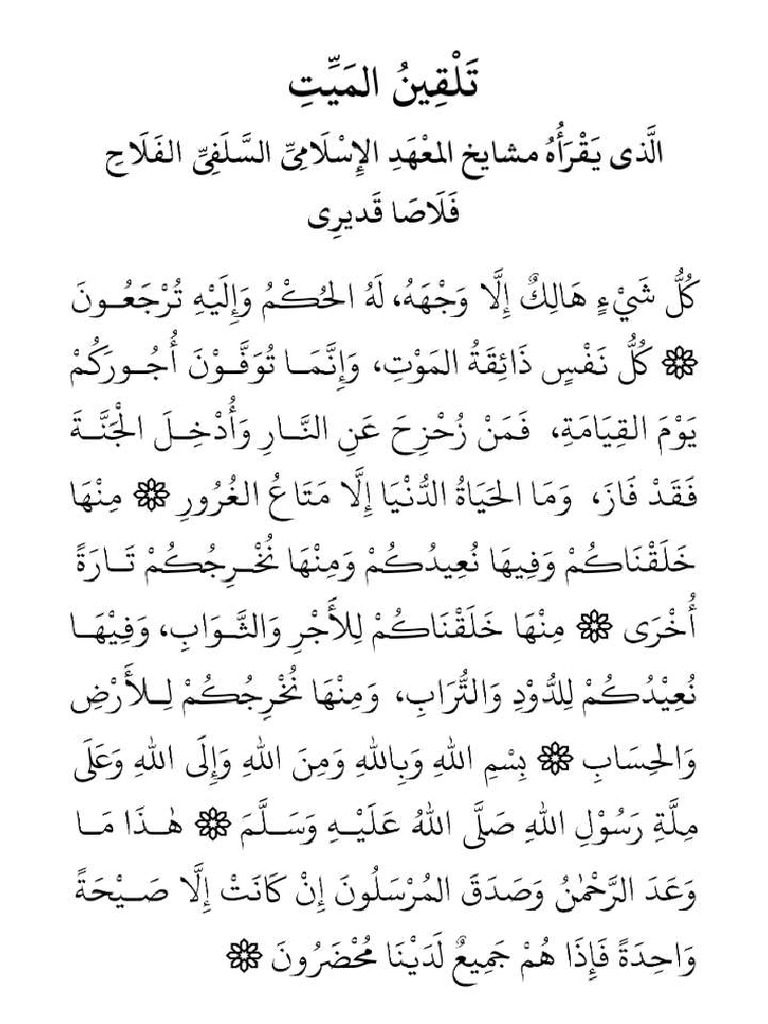 تَلْقِينُ المَيِّتِ
الَّذى يَقْرَأُهُ مشايخ المعْهَدِ الإِسْلَامِىِّ السَّلَفِىِّ الفَلَاحِ
فَلَاصَا قَديرِى
كُلُّ شَيْءٍ هَالِكٌ إِلَّا وَجْهَهُ، لَهُ الحُكْمُ وَإِلَيْهِ تُرْجَعُونَ
۞ كُلُّ نَفْسٍ ذَائِقَةُ المَوْتِ، وَإِنَّمَا تُوَفَّوْنَ أُجُورَكُمْ
يَوْمَ القِيَامَةِ، فَمَنْ زُحْزِحَ عَنِ النَّارِ وَأُدْخِلَ الْجَنَّةَ
فَقَدْ فَازَ، وَمَا الحَيَاةُ الدُّنْيَا إِلَّا مَتَاعُ الغُرُورِ ۞ مِنْهَا
خَلَقْنَاكُمْ وَفِيهَا نُعِيدُكُمْ وَمِنْهَا نُخْرِجُكُمْ تَارَةً
أُخْرَى ۞ مِنْهَا خَلَقْنَاكُمْ لِلأَجْرِ وَالثَّوَابِ، وَفِيْهَا
نُعِيْدُكُمْ لِلدُّوْدِ وَالتُّرَابِ، وَمِنْهَا نُخْرِجُكُمْ لِلأَرْضِ
وَالحِسَابِ ۞ بِسْمِ اللهِ وَبِاللهِ وَمِنَ اللهِ وَإِلَى اللهِ وَعَلَى
مِلَّةِ رَسُوْلِ اللهِ صَلَّى اللهُ عَلَيْهِ وَسَلَّمَ ۞ هٰذَا مَا
وَعَدَ الرَّحْمٰنُ وَصَدَقَ المُرْسَلُونَ إِنْ كَانَتْ إِلَّا صَيْحَةً
وَاحِدَةً فَإِذَا هُمْ جَمِيعٌ لَدَيْنَا مُحْضَرُونَ ۞